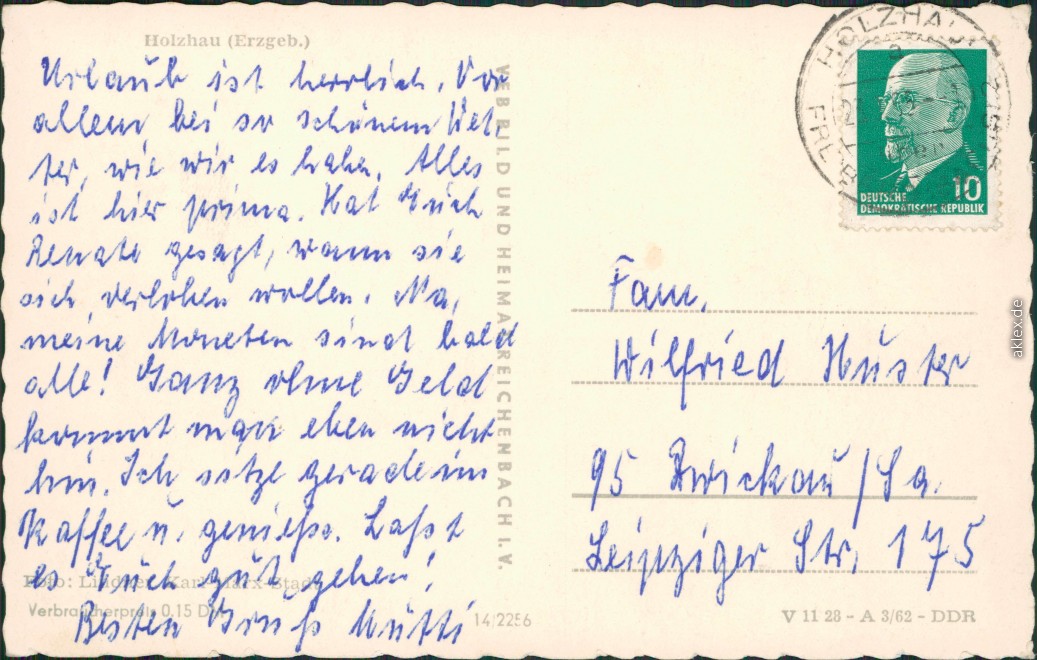 Holzhau (Erzgeb.)
Urlaub ist herrlich. Vor
allem bei so schönem Wet-
ter, wie wir es haben. Alles
ist hier prima. Hat Euch
Renate gesagt, wann sie
sich verloben wollen. Na,
meine Moneten sind bald
alle! Ganz ohne Geld
kommt man eben nicht
hin. Ich sitze gerade im
Kaffee u. genieße. Laßt
es Euch gut gehen!
Besten Gruß Mutti
Foto: Lindner, Karl-Marx-Stadt
Verbraucherpreis 0,15 DM
14/2256
VEB BILD UND HEIMAT REICHENBACH I. V.
HOLZHAU
DEUTSCHE
DEMOKRATISCHE REPUBLIK
10
Fam.
Wilfried Huster
95 Zwickau / Sa.
Leipziger Str. 175
V 11 28 - A 3/62 - DDR
aklex.de